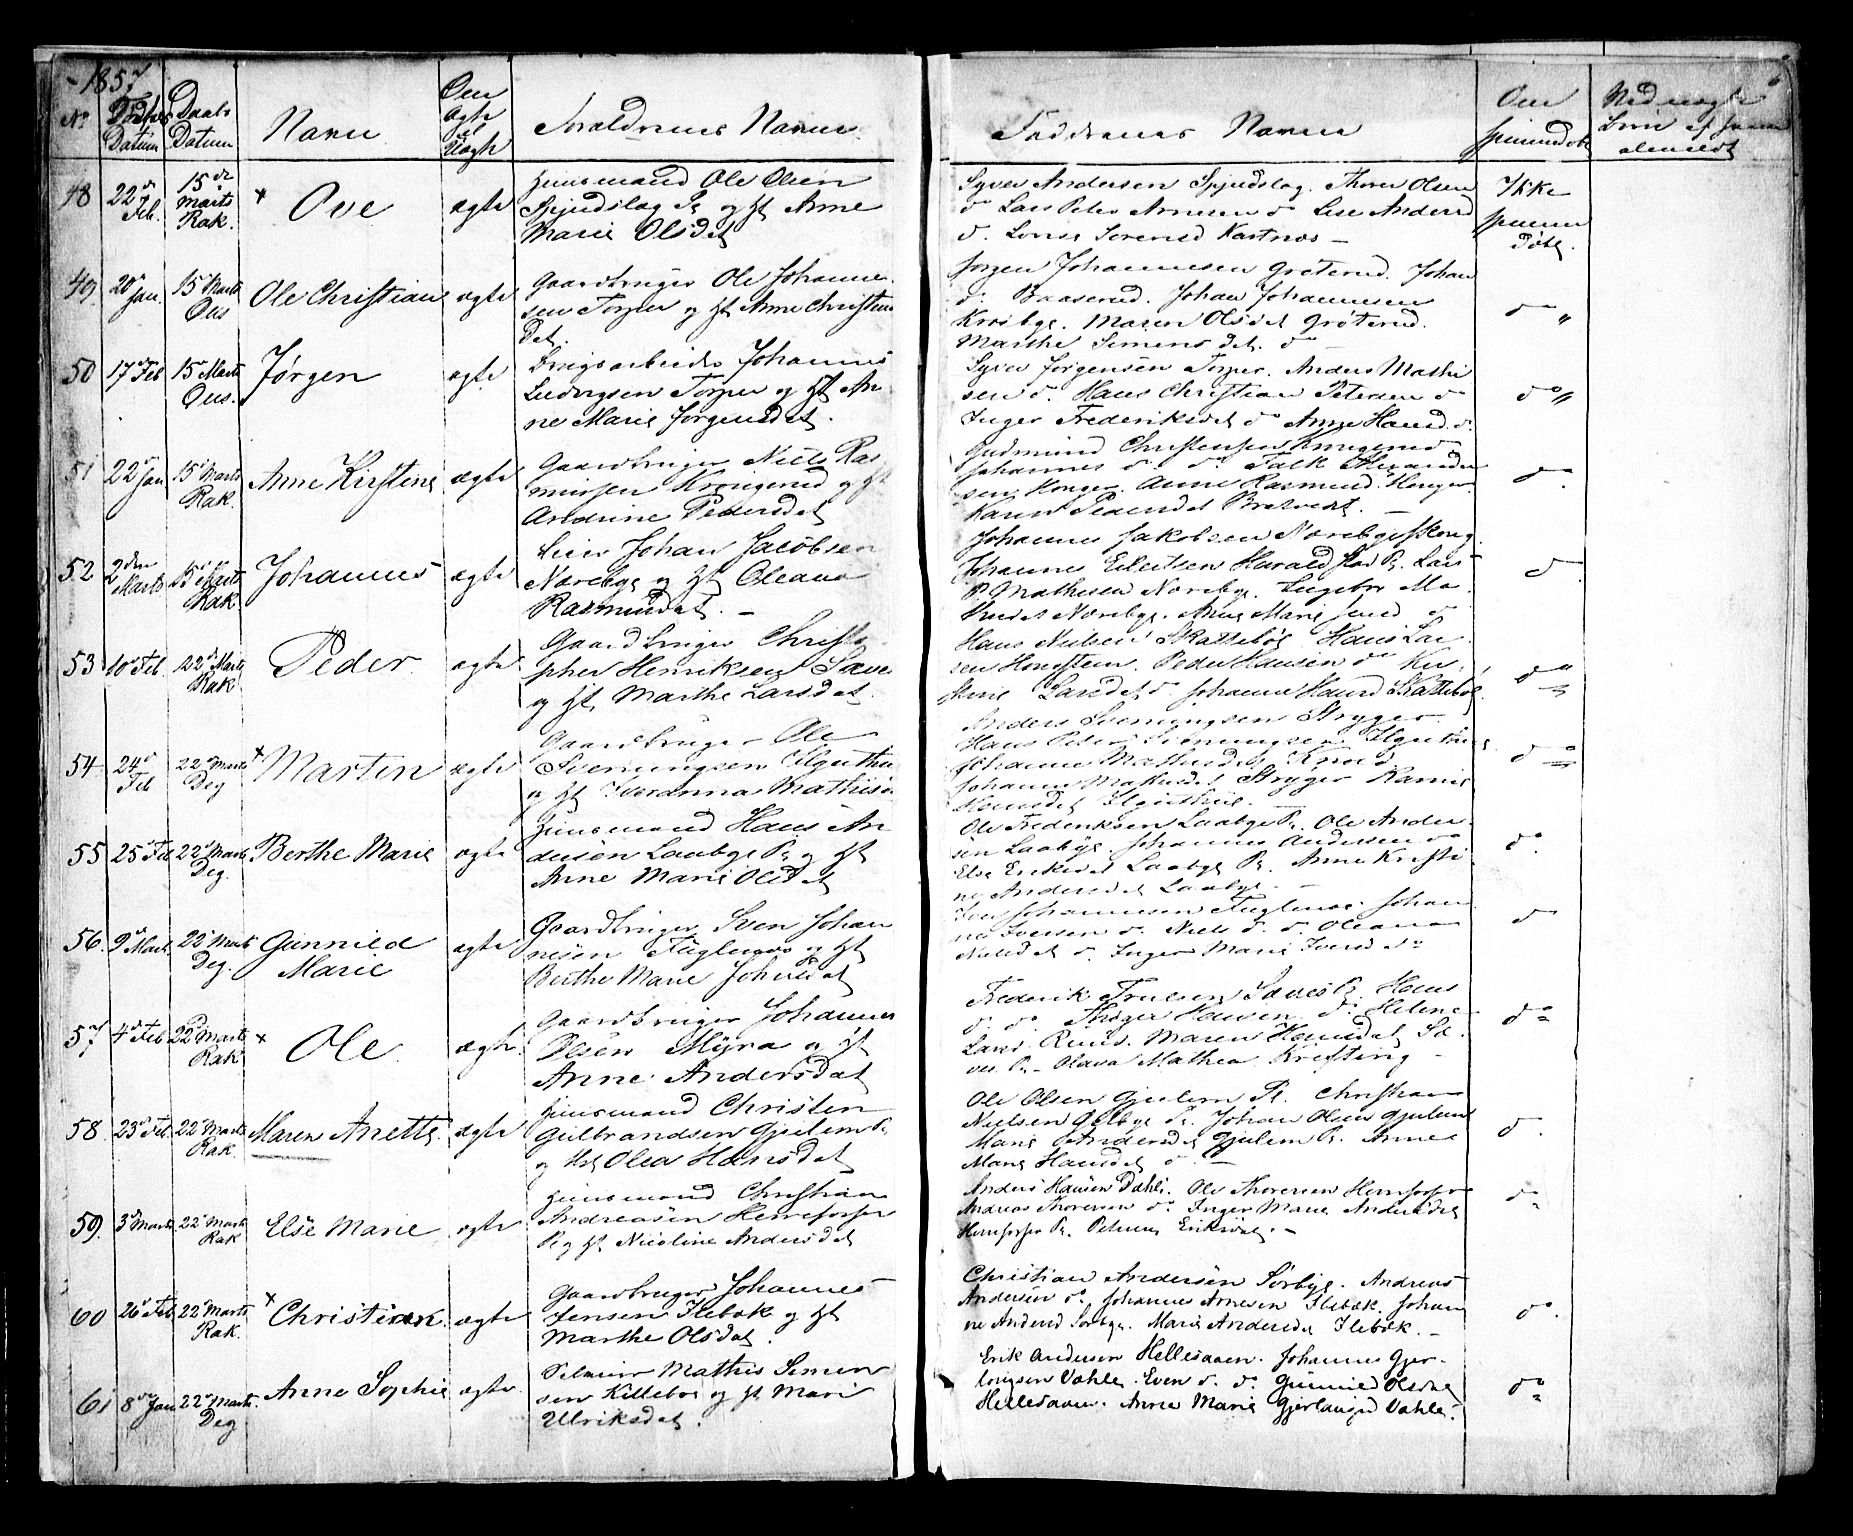 1857
No
Fødsels Datum
Daabs Datum
Navn
Om Ægte el Uægte
Forældrenes Navne
Faddernes Navne
Om
48
22de Feb.
15de Marts Rak.
× Ove
ægte
Huusmand Ole Olsen
Spjudslag Pl og Ht Anne
Marie Olsdat
Syver Andersen Spjudslag. Thorer Olsen
do Lars Peter Arnesen do Lise Andersd
d. Lovise Sørensd Kastnæs —
Ikke
49
20 Jan.
15 Marts Ous
Ole Christian
ægte
Gaardbruger Ole Johanne
sen Torper og Ht Anne Christens
Dat.
Jørgen Johannesen Grøterud. Johan
do Baaserud. Johan Johannesen
Krosbye. Maren Olsdat Grøterud.
Marthe Simensdat. do —
do "
50
17 Feb
15 Marts Ous.
Jørgen
ægte
Brugsarbeider Johannes
Ludvigsen Torper og Ht An
ne Marie Jørgensdat.
Syver Jørgensen Torper. Anders Mathi
sen do. Hans Christian Petersen do
Inger Frederiksdat do Anne Hansd. d.
do "
51
22 Jan
15 Marts Rak.
Anne Kirstine
ægte
Gaardbruger Niels Ras
musen Krougerud og Ht
Andrine Pedersdat
Gudmund Christensen Krougerud
Johannes d. do Falk Alexander
sen Houger. Anne Rasmusd. Houger.
Karen Pedersdat Bratvedt. —
do.
52
2den Marts
15 Marts Rak
Johannes
ægte
Leier Johan Jacobsen
Nærebye og Ht Oleava
Rasmusdat. —
Johannes Jakobsen Nærebyeskoug
Johannes Eilertsen Haraldstad Pl. Lars
P. Mathisen Nærebye. Ingebor Ma
thisdat Nærebye. Anne Marie
d.
53
10 Feb
22 Marts Rak
Peder
ægte
Gaardbruger Christo
pher Henriksen Save
og Ht. Marthe Larsdat.
Hans Nielsen Skattebøl Hans Lar
sen Hougsteen. Peder Hansen do Kir
stine Larsdat do. Johanne Hansd Skattebøl.
do "
54
24 Feb
22 Marts Deg
× Martin
ægte
Gaardbruger Ole
Svenungsen
og Ht Iveranna Mathisd
Anders Svenungsen Stryger.
Hans Peter Svenungsen
Johanne Mathisdat Knold
Johanne Mathisdat Stryger Karen
Hansdat
do
55
25 Feb
22 Marts Deg.
Berthe Marie
ægte
Huusmand Hans An
dersen Laabye Pl og Ht
Anne Marie Olsdat
Ole Frederiksen Laabye Pl. Ole Ander
sen Laabye. Johannes Andersen do
Else Eriksdat Laabye Pl. Anne Kristi
ne Andersdat Laabye. —
do.
56.
9 Marts
22 Marts Deg.
Gunnild Marie
ægte
Gaardbruger Sven Johan
nesen Fuglenæs og Ht
Berthe Marie Johnsdat
Iver Johannesen Fuglenæs. Johan
nes Iversen do. Niels d. d. Oleana
Nilsdat do. Inger Marie Iversd do
d
57
4 Feb
22 Marts Rak
× Ole.
ægte.
Gaardbruger Johannes
Olsen Myra og Ht
Anne Andersdat
Frederik Truelsen Saves Pl. Hans
d. do Theger Hansen do Helene
Larsd. Ruus. Maren Hansdat Sa
ves Pl. Olava Mathea Kristing —
do
58
23 Feb.
22 Marts Rak.
Maren Anette.
ægte
Huusmand Christen
Gulbrandsen Gjulem Pl
og Ht Olea Hansdat
Ole Olsen Gjulem Pl. Christian
Nielsen Galbye Pl. Johan Olsen Gjulem
Marie Andersdat Gjulem Pl. Anne
Marie Hansdat d. —
d.
59.
3 Marts
22 Marts Rak
Else Marie
ægte
Huusmand Christian
Andreasen Herreforser
Pl og Ht Nicoline Andersdat
Anders Hansen Dahle. Ole Thoresen Herrforser
Andreas Thoresen do. Inger Marie Andersdat
Herrforser Pl. Petrine Eriksdat. —
do
60
26 Feb
22 Marts Rak.
× Christian.
ægte
Gaardbruger Johannes
Jensen Ilebæk og Ht
Marthe Olsdat.
Christian Andersen Sørbye. Andreas
Andersen do. Johannes Arnesen Ilebæk. Johan
ne Andersd Sørbye. Marie Andersdat Ilebæk. —
do.
61
8de Jan
22 Marts Deg
Anne Sophie
ægte
Selveier Mathis Simen
sen Killebo og Ht Mari
Ulriksdat.
Erik Andersen Hellesaaen. Johannes Gjer
lougsen Vahle. Even d. do. Gunnild Olsdat
Hellesaaen. Anne Marie Gjerlaugsd Vahle.
do